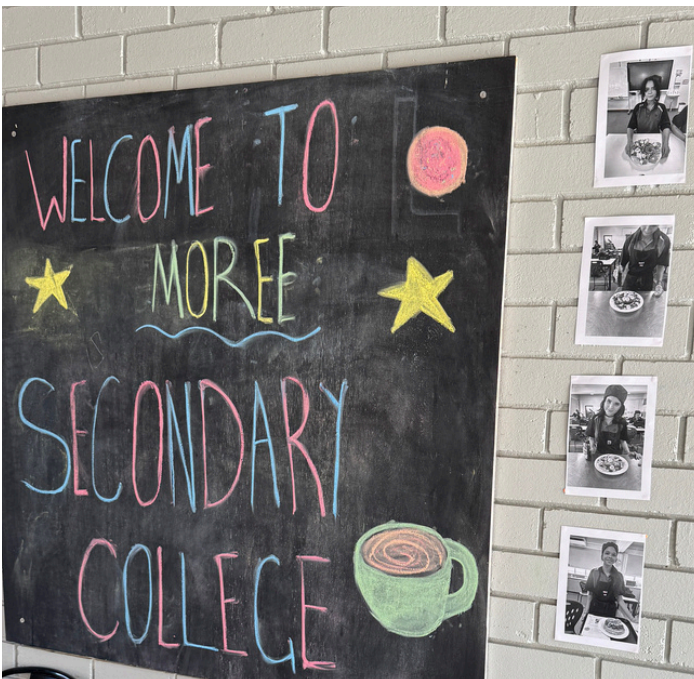 WELCOME TO
MOREE
SECONDARY
COLLEGE